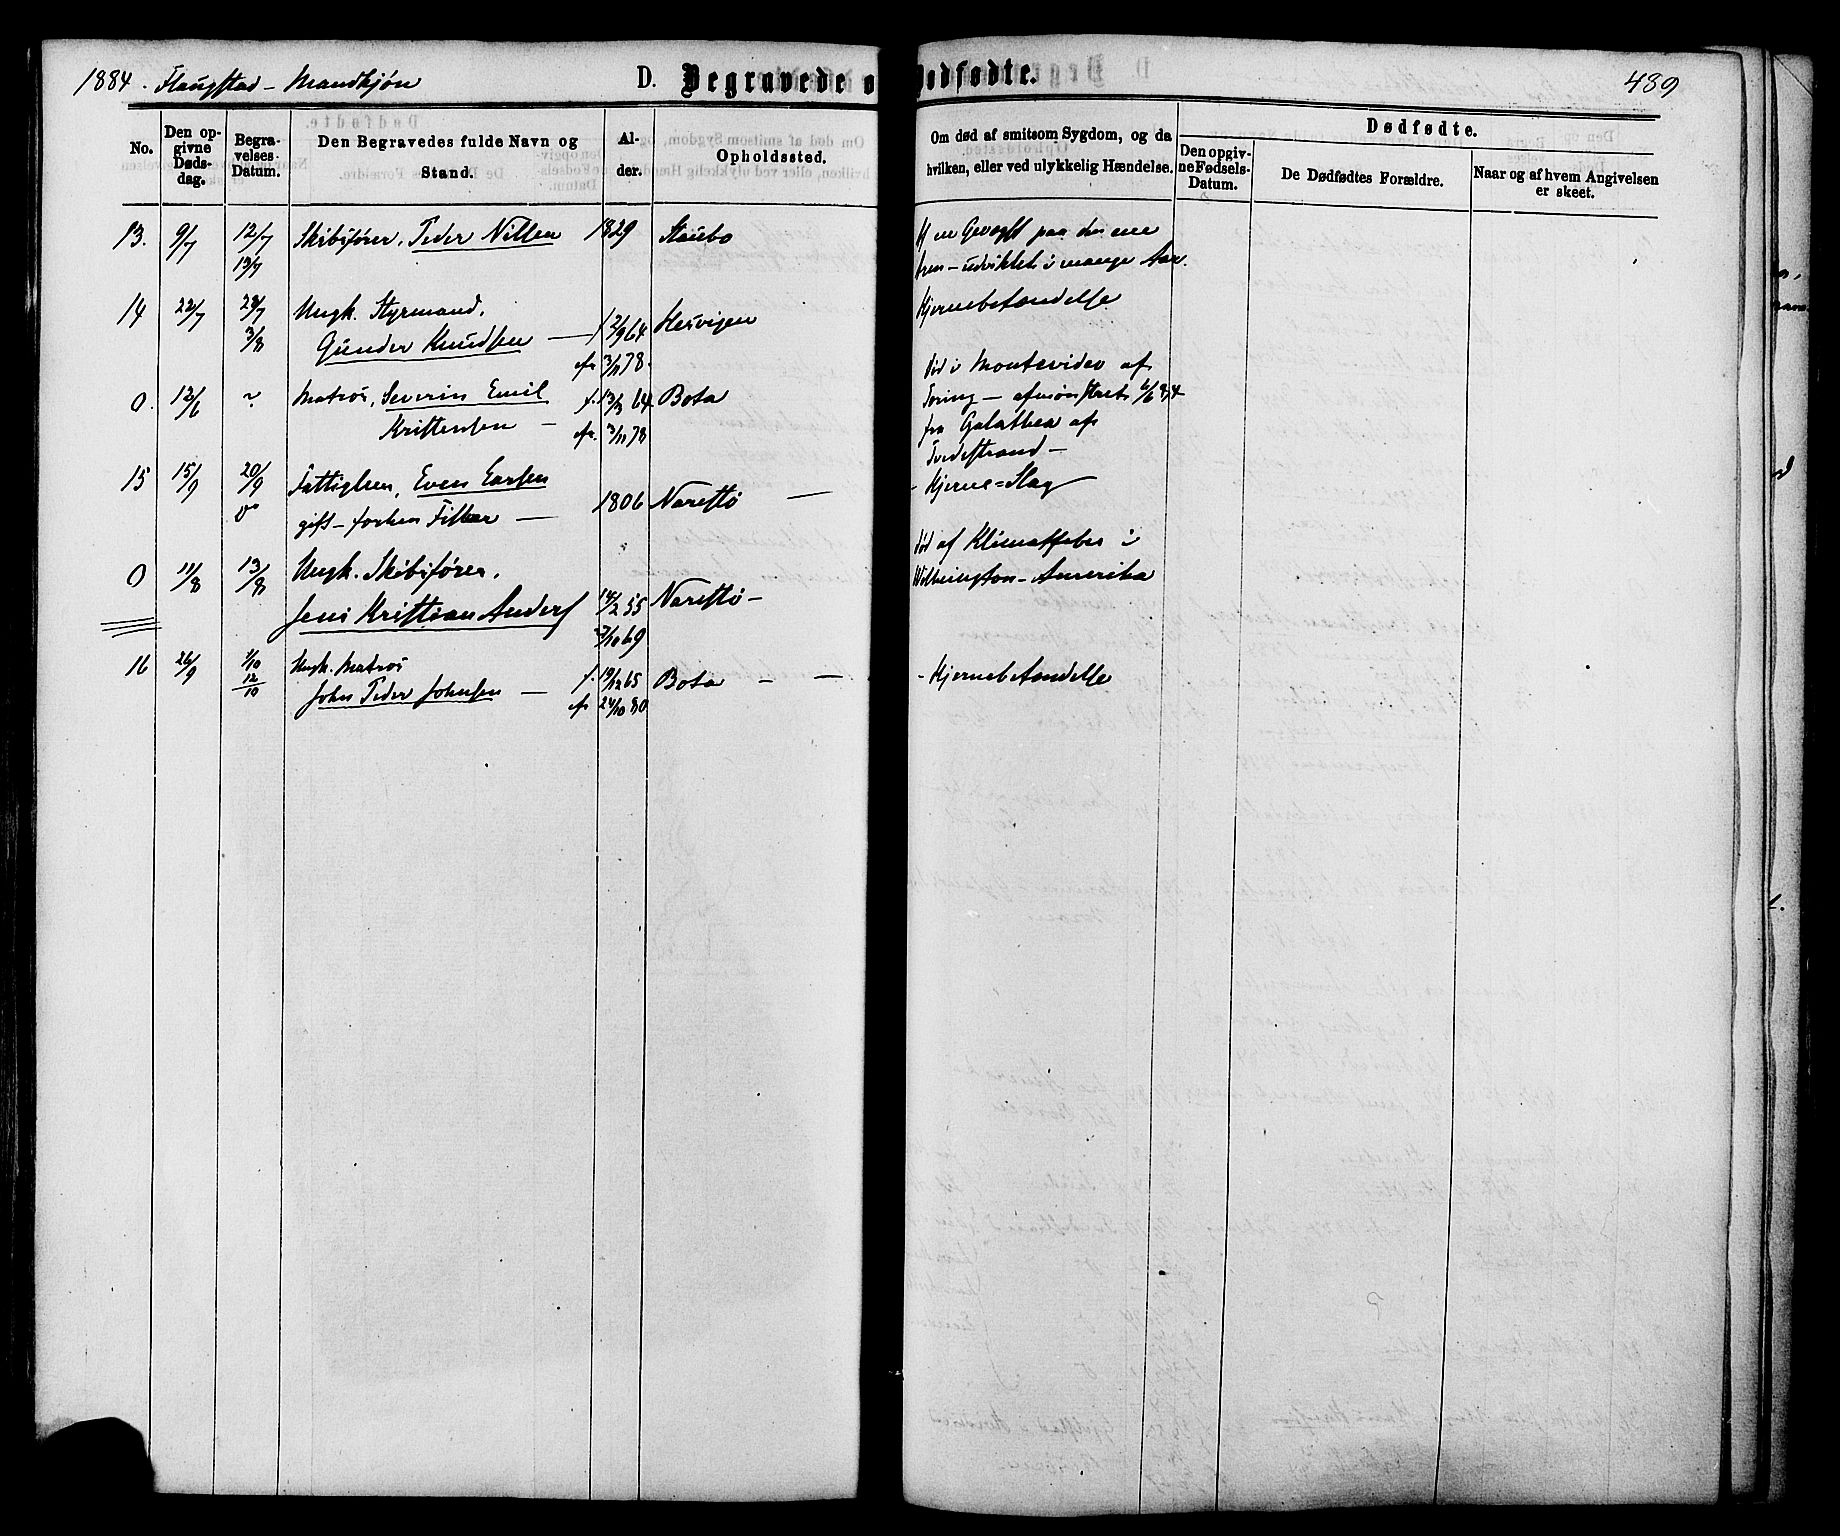 1884. Flaugstad – Mandkjøn D. Begravede o Dødfødte. 489
No.
Den opgivne Dødsdag.
Begravelses-Datum.
Den Begravedes fulde Navn og Stand.
Alder.
Opholdssted.
Om død af smitsom Sygdom, og da hvilken, eller ved ulykkelig Hændelse.
Dødfødte.
Den opgivne Fødsels-Datum.
De Dødfødtes Forældre.
Naar og af hvem Angivelsen er skeet.
13. 9/7 12/7 Skibsfører, Peder Nilsen 1829 Staubo
13/7
paa den ene
udviklet i mange Aar.
14 22/7 28/7 Ungk. Styrmand, Hjernebetændelse
3/8 Gunder Knudsen — f 12/9 64 Hesvigen
cfr 3/11 78.
0. 12/6 ~ Matros, Severin Emil f. 13/3 64 Bota
Kristensen — cfr. 3/11 78
død i Montevideo af
Tæring — afmønstret 6/6 84
fra Galathea af
Tvedestrand —
15 15/9 20/9 Fattiglem, Even Larsen
gift – forhen Fisker — 1806 Narestø — - Hjerne=Slag
0 11/8 13/8 Ungk. Skibsfører,
Jens Kristian Anders 14/2 55 Narestø –
3/10 69
død af Klimatfeber i
Wilmington – Amerika
16 26/9 1/10 Ungk. Matros
12/10 John Peder Johnsen — f. 19/12 65 Bota – – - Hjernebetændelse
cfr 24/10 80